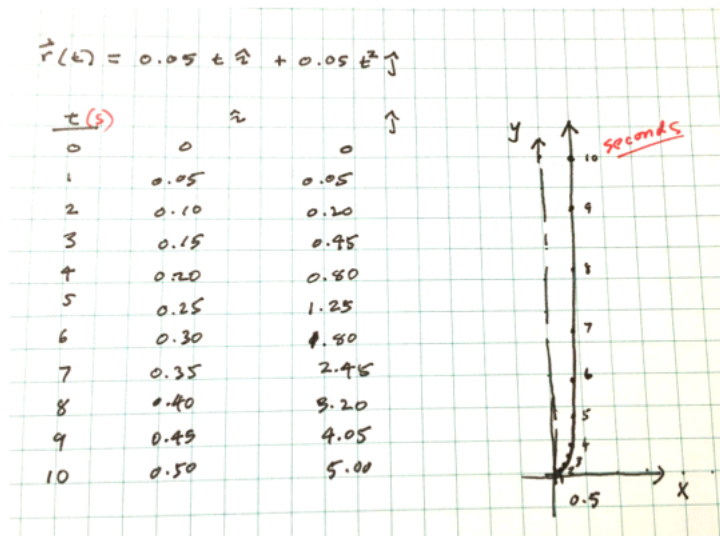 r⃗(t) = 0.05 t î + 0.05 t² ĵ
t(s) î ĵ
0 0 0
1 0.05 0.05
2 0.10 0.20
3 0.15 0.45
4 0.20 0.80
5 0.25 1.25
6 0.30 1.80
7 0.35 2.45
8 0.40 3.20
9 0.45 4.05
10 0.50 5.00
y
seconds
10
9
8
7
6
5
4
3
2
0.5
x